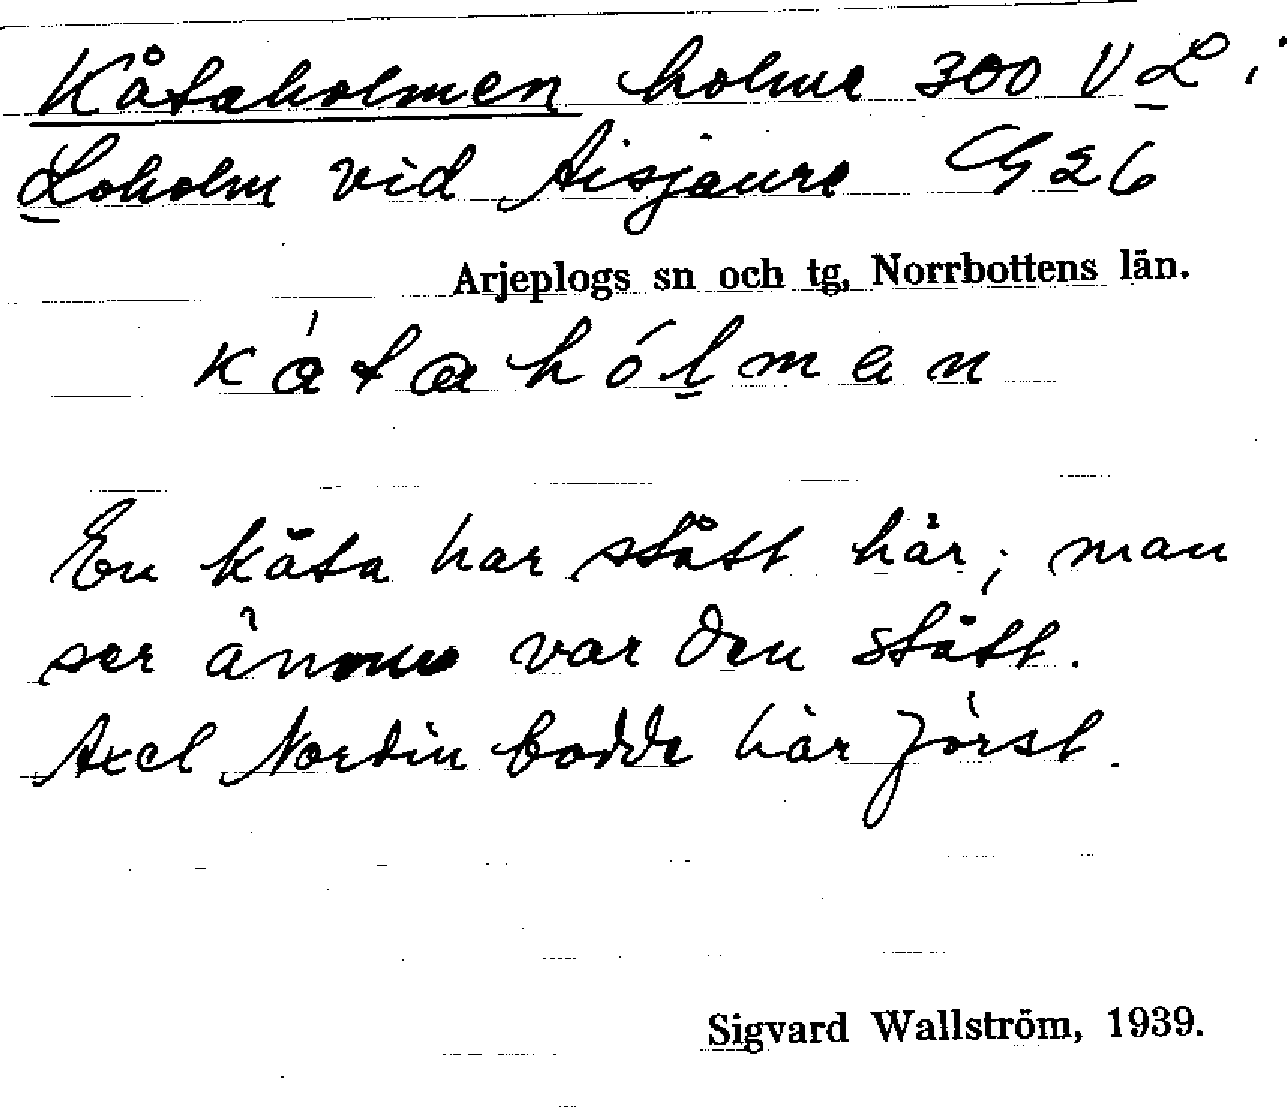 Kåtaholmen holme 300 V L i
Loholm vid Aisjaure G 26
Arjeplogs sn och tg, Norrbottens län.
kátahólmen
En kåta har stått här; man
ser ännu var den stått.
Axel Nordin bodde här först.
Sigvard Wallström, 1939.